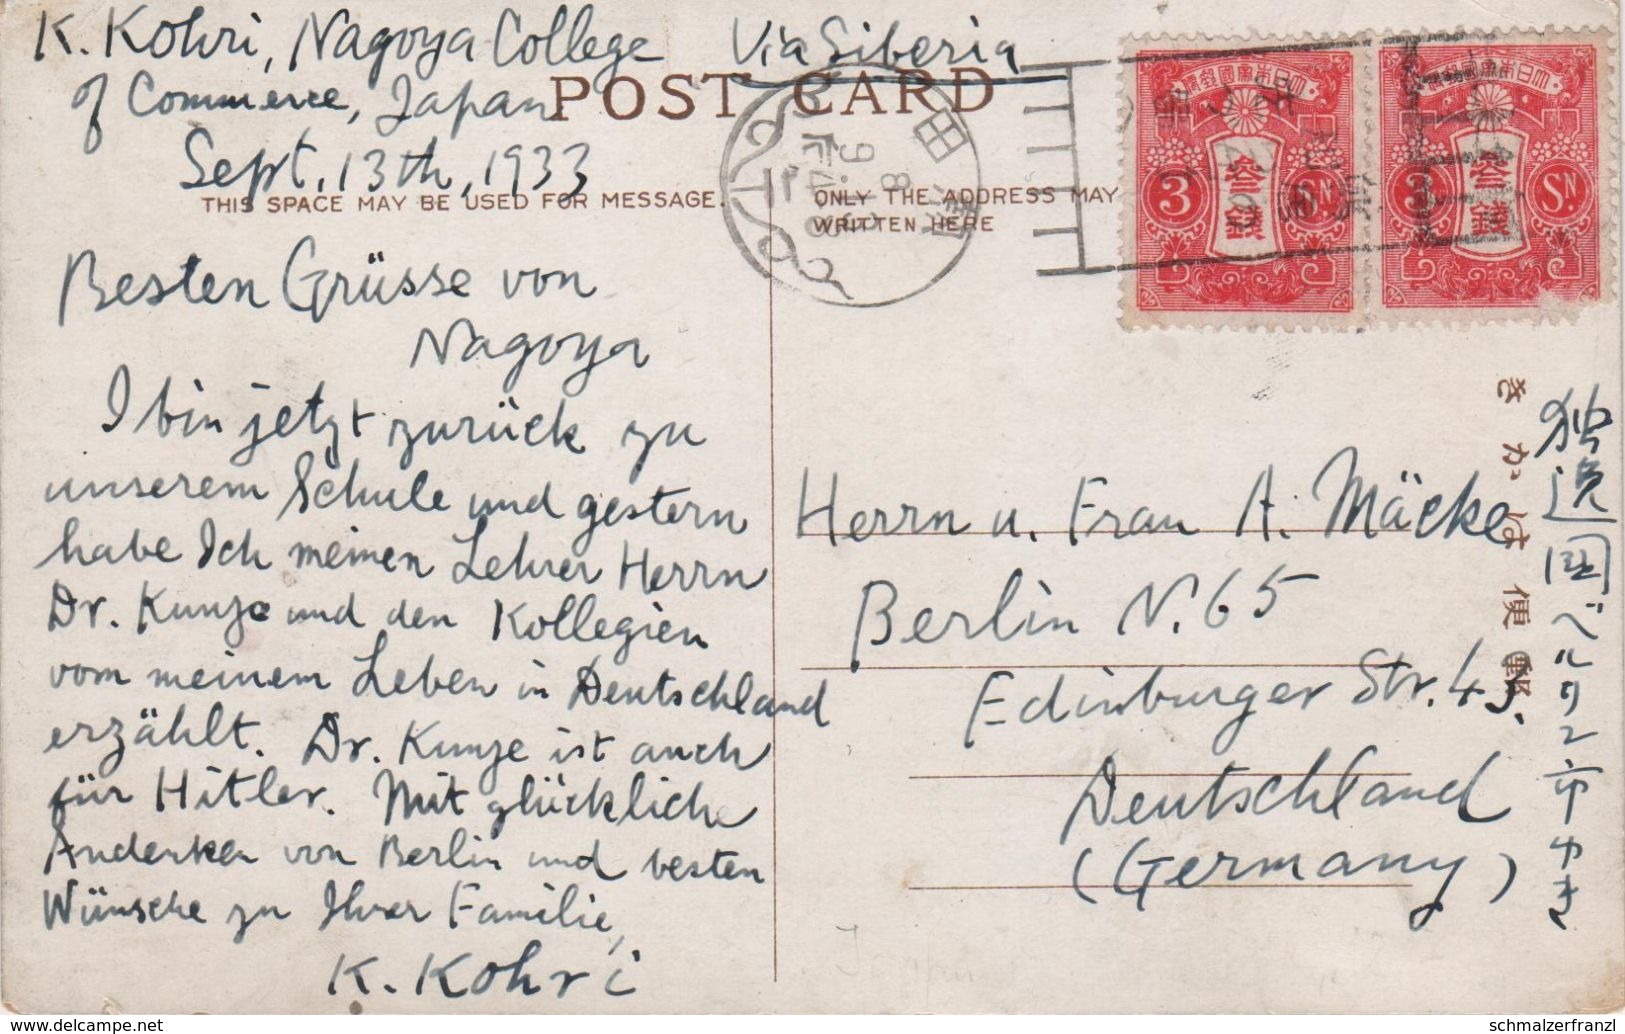 K. Kohri, Nagoya College
of Commerce, Japan
Sept. 13th, 1933
Via Siberia
POST CARD
THIS SPACE MAY BE USED FOR MESSAGE.
ONLY THE ADDRESS MAY
WRITTEN HERE
3 参銭 SN.
3 参銭 SN.
大日本帝國郵便
大日本帝國郵便
Besten Grüsse von
Nagoya
I bin jetzt zurück zu
unserem Schule und gestern
habe Ich meinen Lehrer Herrn
Dr. Kunze und den Kollegien
vom meinem Leben in Deutschland
erzählt. Dr. Kunze ist auch
für Hitler. Mit glücklich
Andenken von Berlin und besten
Wünsche zu Ihrer Familie,
K. Kohri
Herrn u. Frau A. Mäcke
Berlin N. 65
Edinburger Str. 45.
Deutschland
(Germany)
きかは便郵
独逸国ベルリン市ゆき
www.delcampe.net
schmalzerfranzl